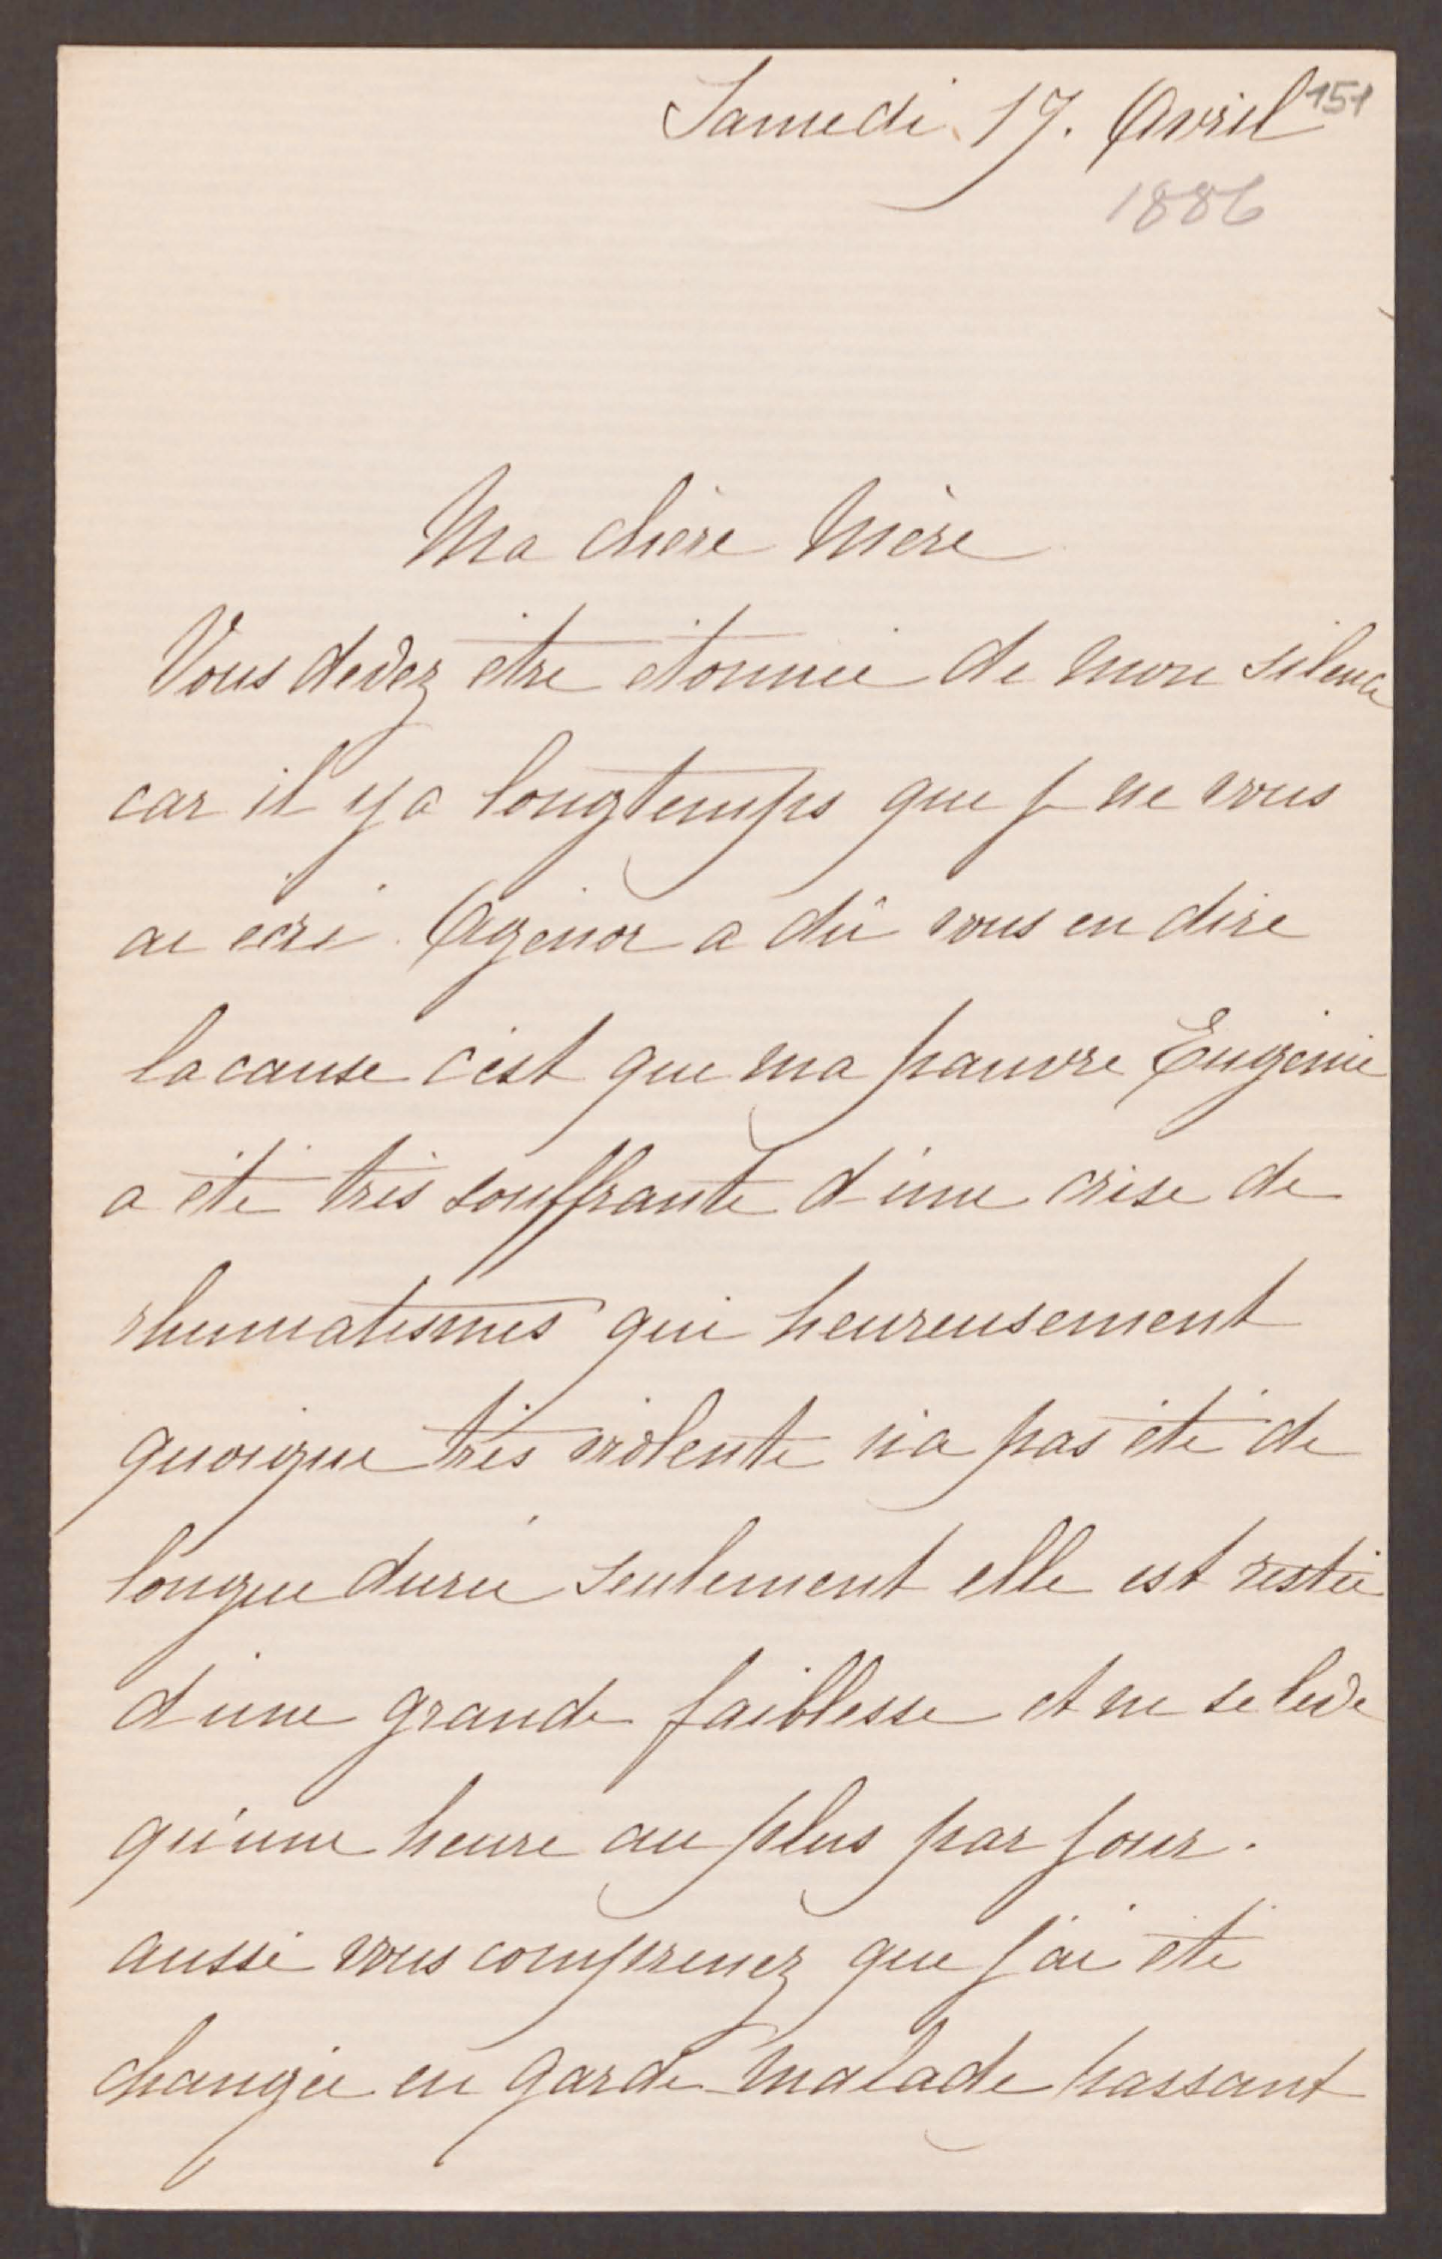 151
Samedi 17. Avril
1886
Ma chère Mère
Vous devez être étonnée de mon silence
car il y a longtemps que je ne vous
ai écri. Agénor a dû vous en dire
la cause c'est que ma pauvre Eugénie
a été très souffrante d'une crise de
rhumatismes qui heureusement
quoique très violente n'a pas été de
longue durée seulement elle est restée
d'une grande faiblesse et ne se lève
qu'une heure au plus par jour.
aussi vous comprenez que j'ai été
changée en garde malade passant